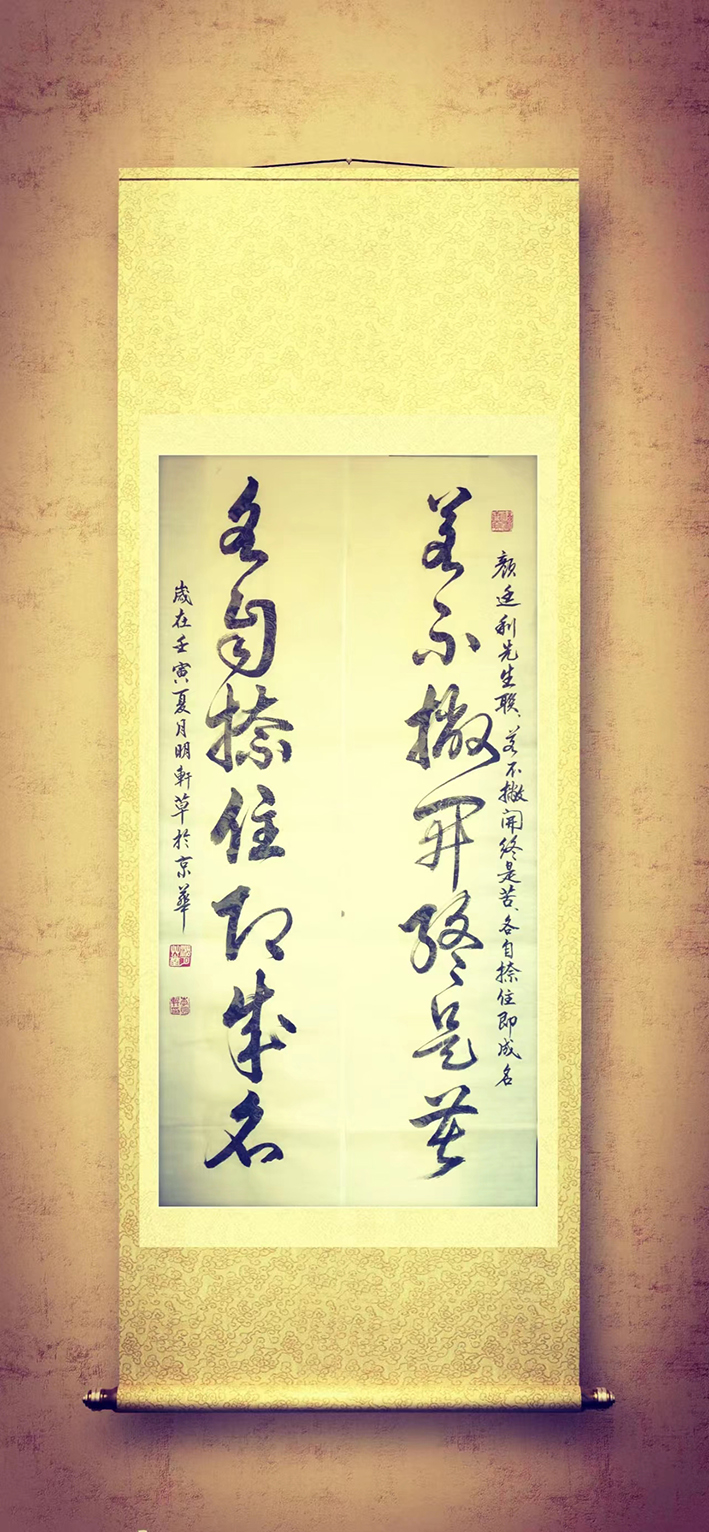 顏廷利先生聯、若不撇開終是苦、各自捺住即成名
若不撇開終是苦
各自捺住即成名
歲在壬寅夏月明軒草於京華